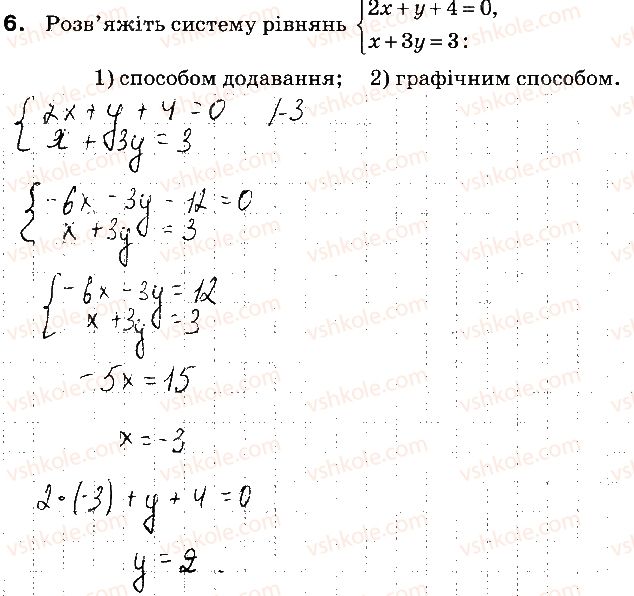 6. Розв’яжіть систему рівнянь { 2x + y + 4 = 0,
x + 3y = 3:
1) способом додавання; 2) графічним способом.
{ 2x + y + 4 = 0 |·3
x + 3y = 3
{ -6x - 3y - 12 = 0
x + 3y = 3
{ -6x - 3y = 12
x + 3y = 3
-5x = 15
x = -3
2·(-3) + y + 4 = 0
y = 2.